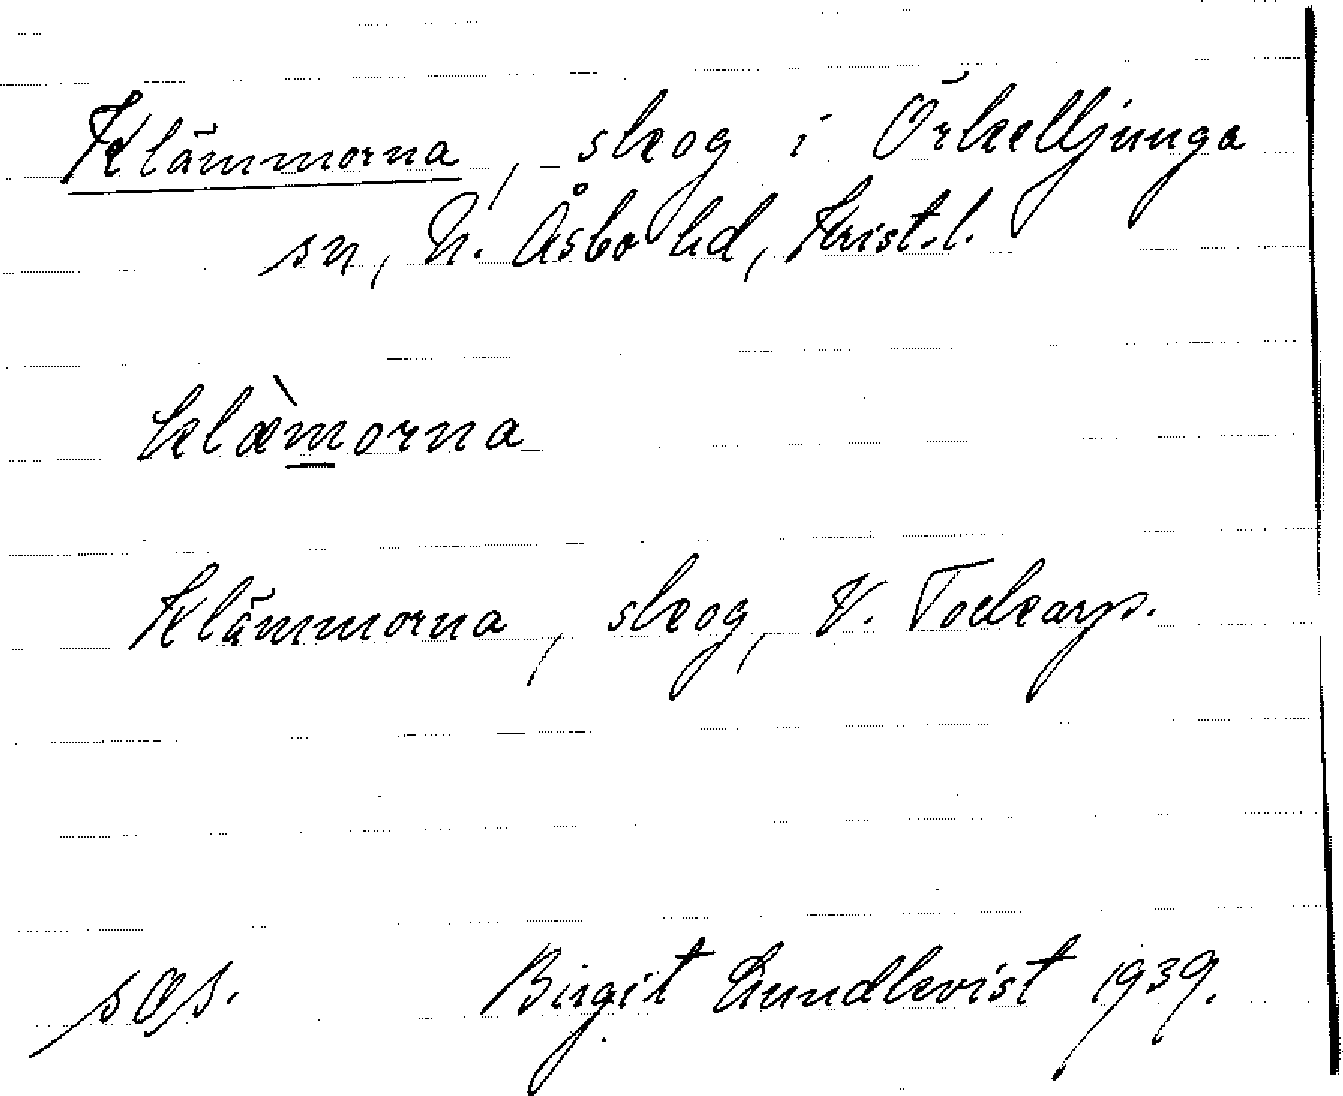 Klämmorna, skog i Örkelljunga
sn, N. Åsbo hd, Krist. l.
klæ̀m̲orna
Klämmorna, skog, V. Tockarp.
sOs. Birgit Lundkvist 1939.